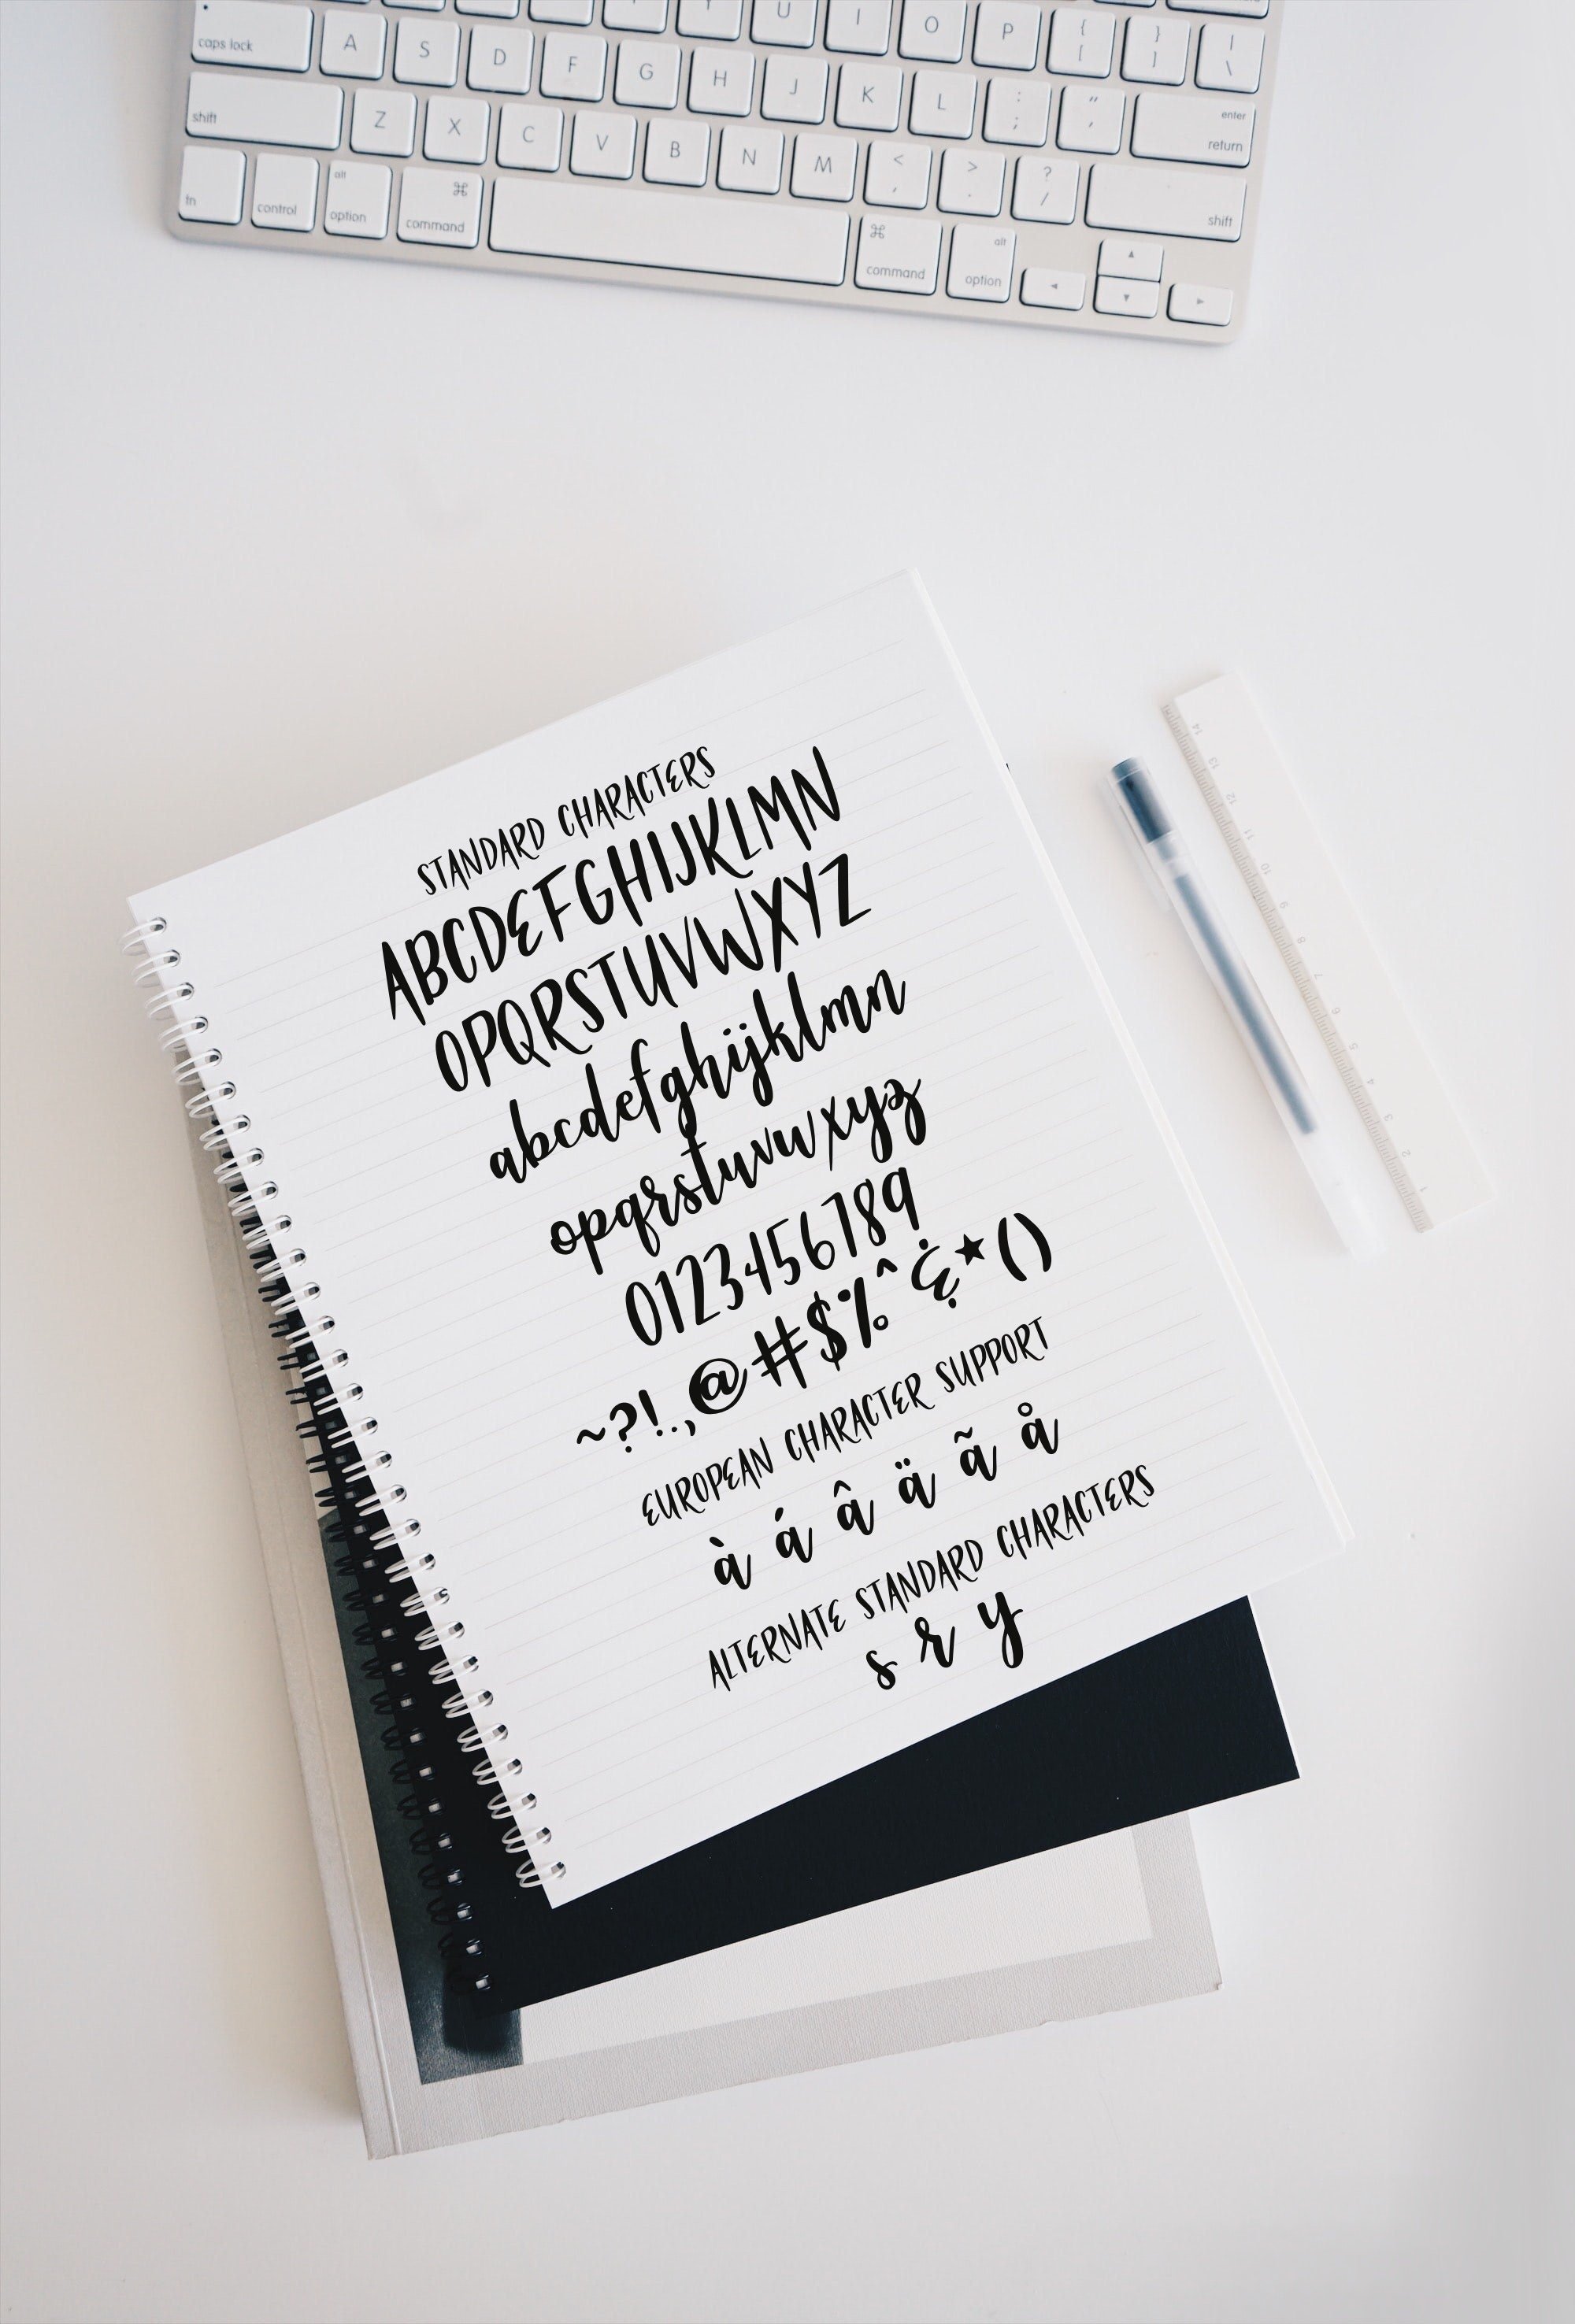 caps lock A S D F G H J K L : ; " ' enter return
U I O P { [ } ] | \
shift Z X C V B N M < , > . ? / shift
fn control alt option ⌘ command ⌘ command alt option ◄ ▲ ▼ ►
STANDARD CHARACTERS
ABCDEFGHIJKLMN
OPQRSTUVWXYZ
abcdefghijklmn
opqrstuvwxyz
0123456789
~?!.,@#$%^&*()
EUROPEAN CHARACTER SUPPORT
à á â ä ã å
ALTERNATE STANDARD CHARACTERS
s r y
14 13 12 11 10 9 8 7 6 5 4 3 2 1